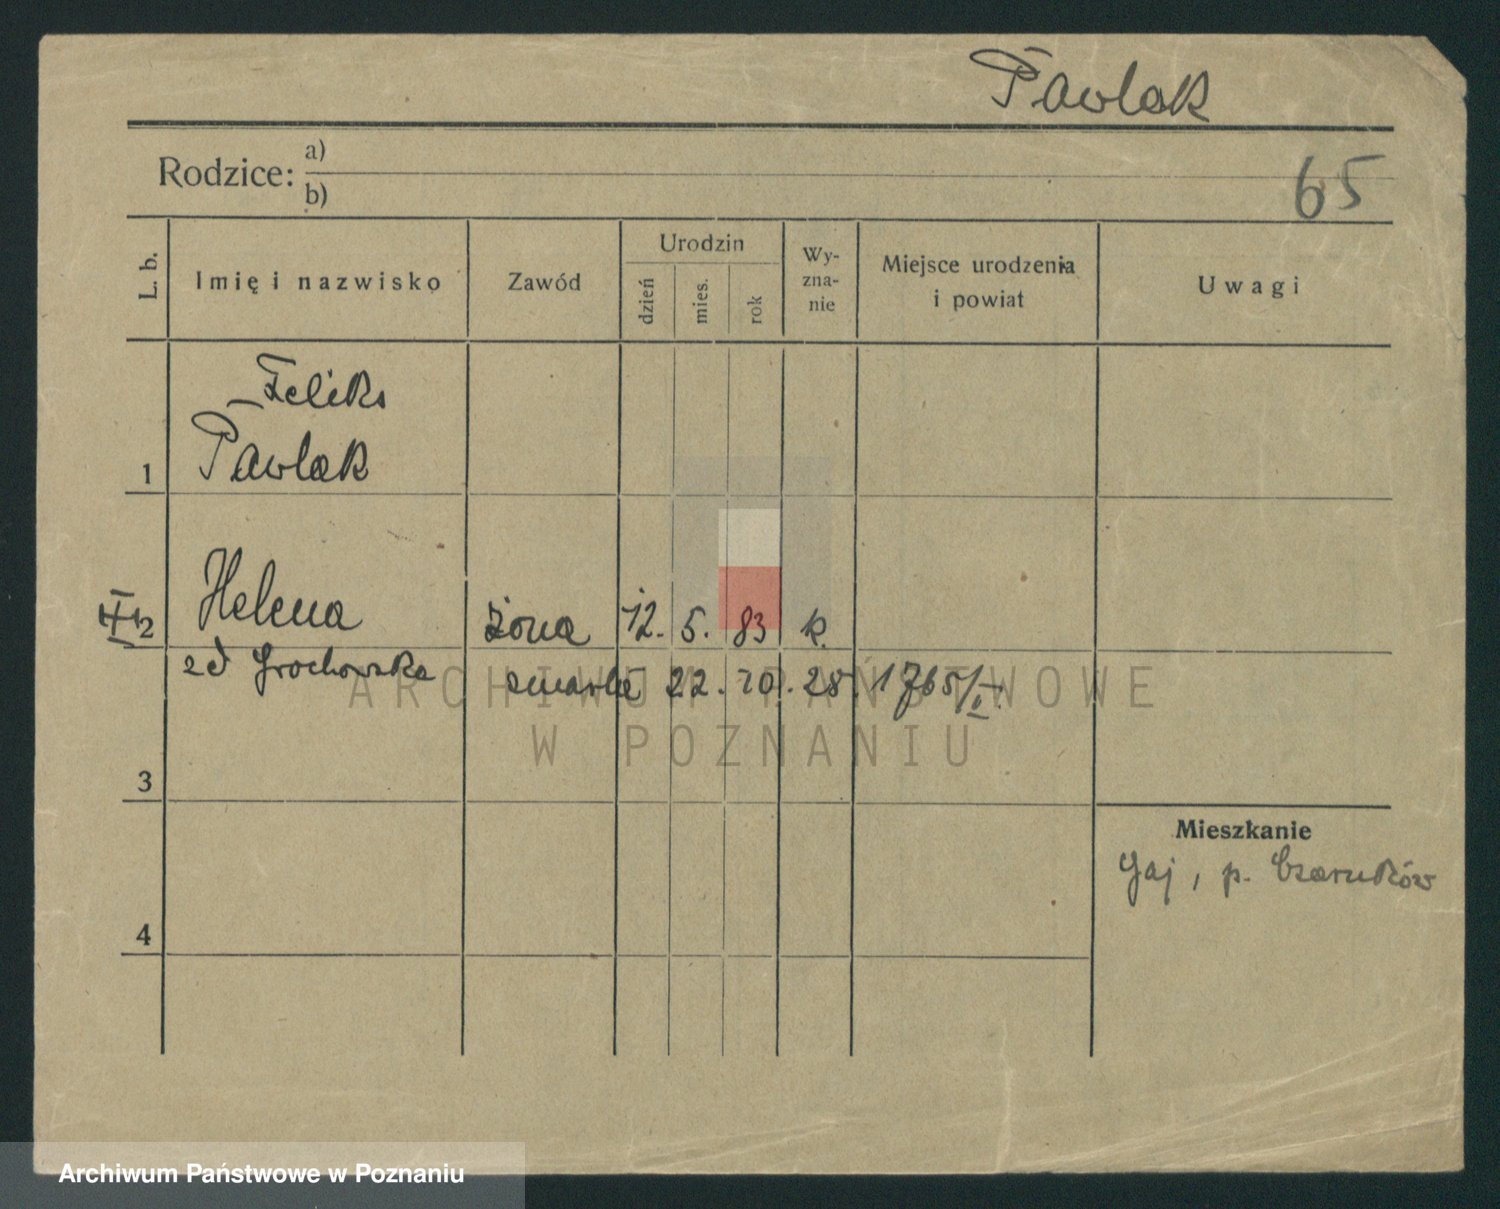 Pawlak
Rodzice: a)
b)
65
L. b.
Imię i nazwisko
Zawód
Urodzin
dzień
mies.
rok
Wy-
zna-
nie
Miejsce urodzenia
i powiat
Uwagi
Feliks
1 Pawlak
2 Helena żona 12. 5. 83 k.
zd Grochowska zmarła 22. 10. 28. 1765/II.
3
Mieszkanie
Gaj, p. Czarnków
4
ARCHIWUM PAŃSTWOWE
W POZNANIU
Archiwum Państwowe w Poznaniu